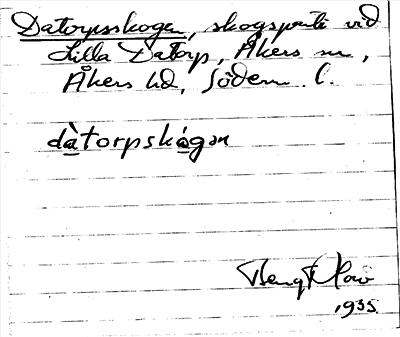 Datorpsskogen, skogsparti vid
Lilla Datorp, Åkers sn,
Åkers hd, Söderm. l.
dàtorpskógən
Bengt
1935